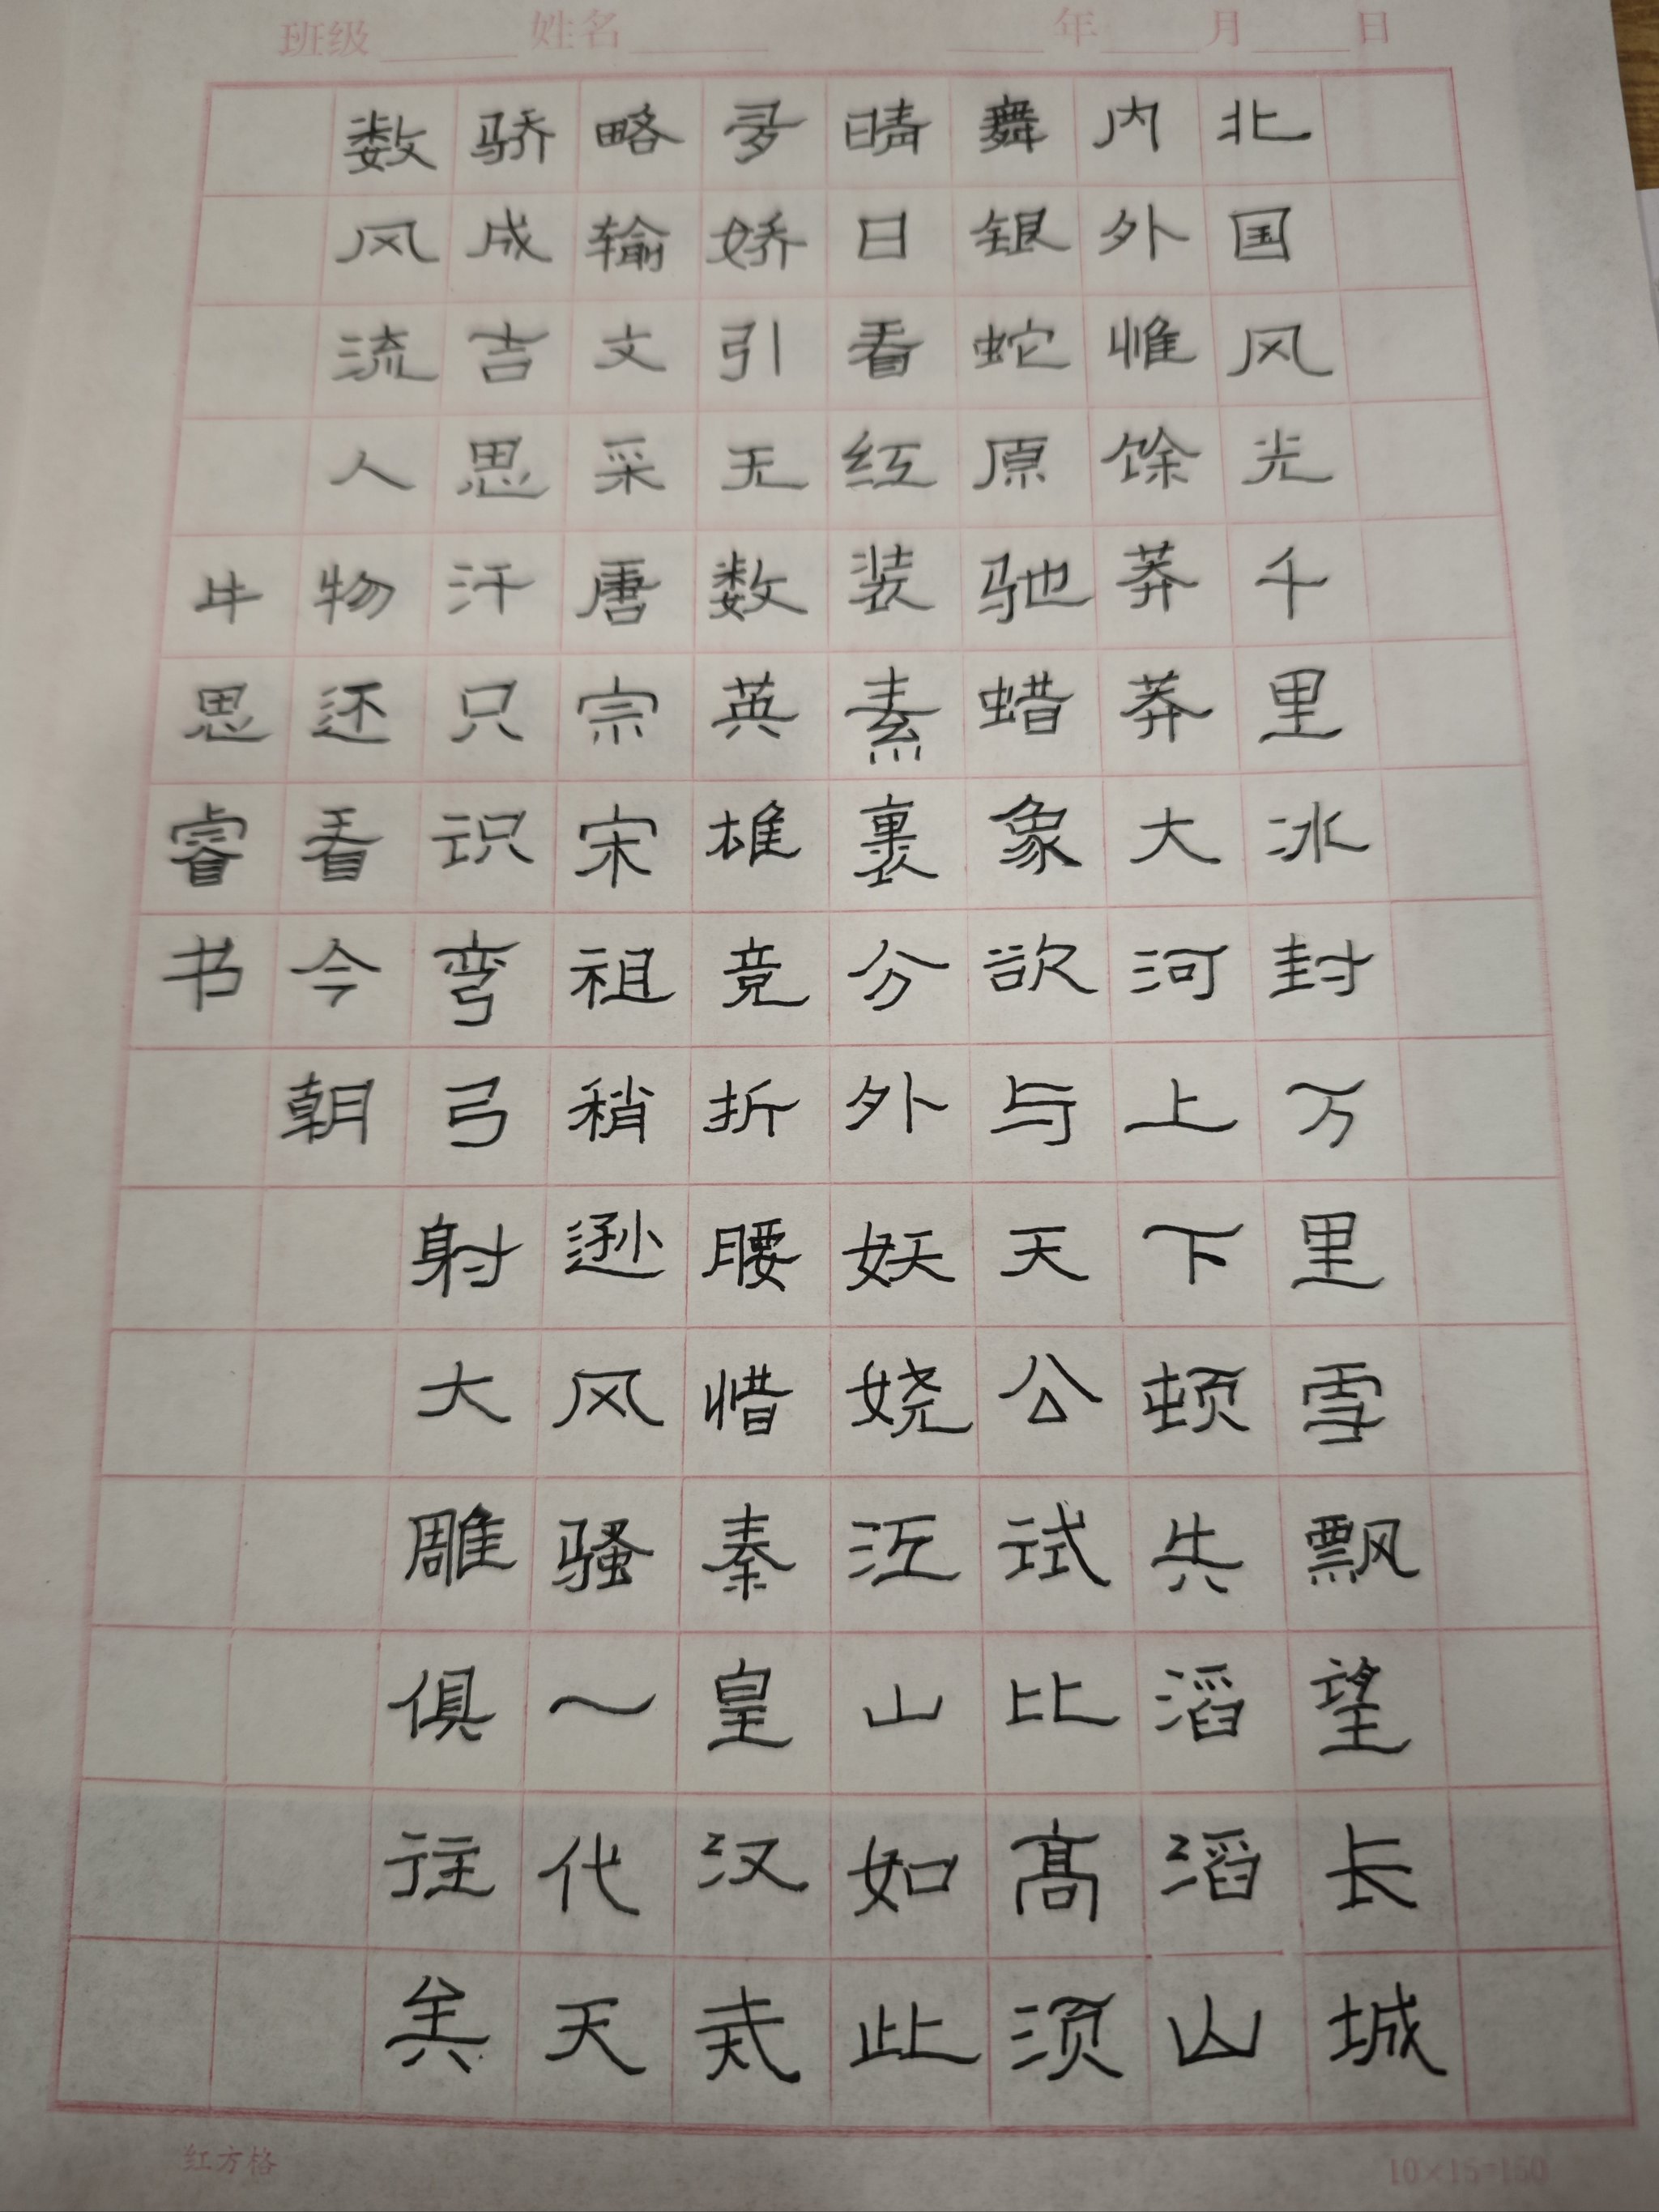 班级 姓名 年 月 日
北国风光千里冰封万里雪飘望长城
内外惟馀莽莽大河上下顿失滔滔山
舞银蛇原驰蜡象欲与天公试比高须
晴日看红装素裹分外妖娆江山如此
多娇引无数英雄竞折腰惜秦皇汉武
略输文采唐宗宋祖稍逊风骚一代天
骄成吉思汗只识弯弓射大雕俱往矣
数风流人物还看今朝
牛思睿书
红方格 10×15=150